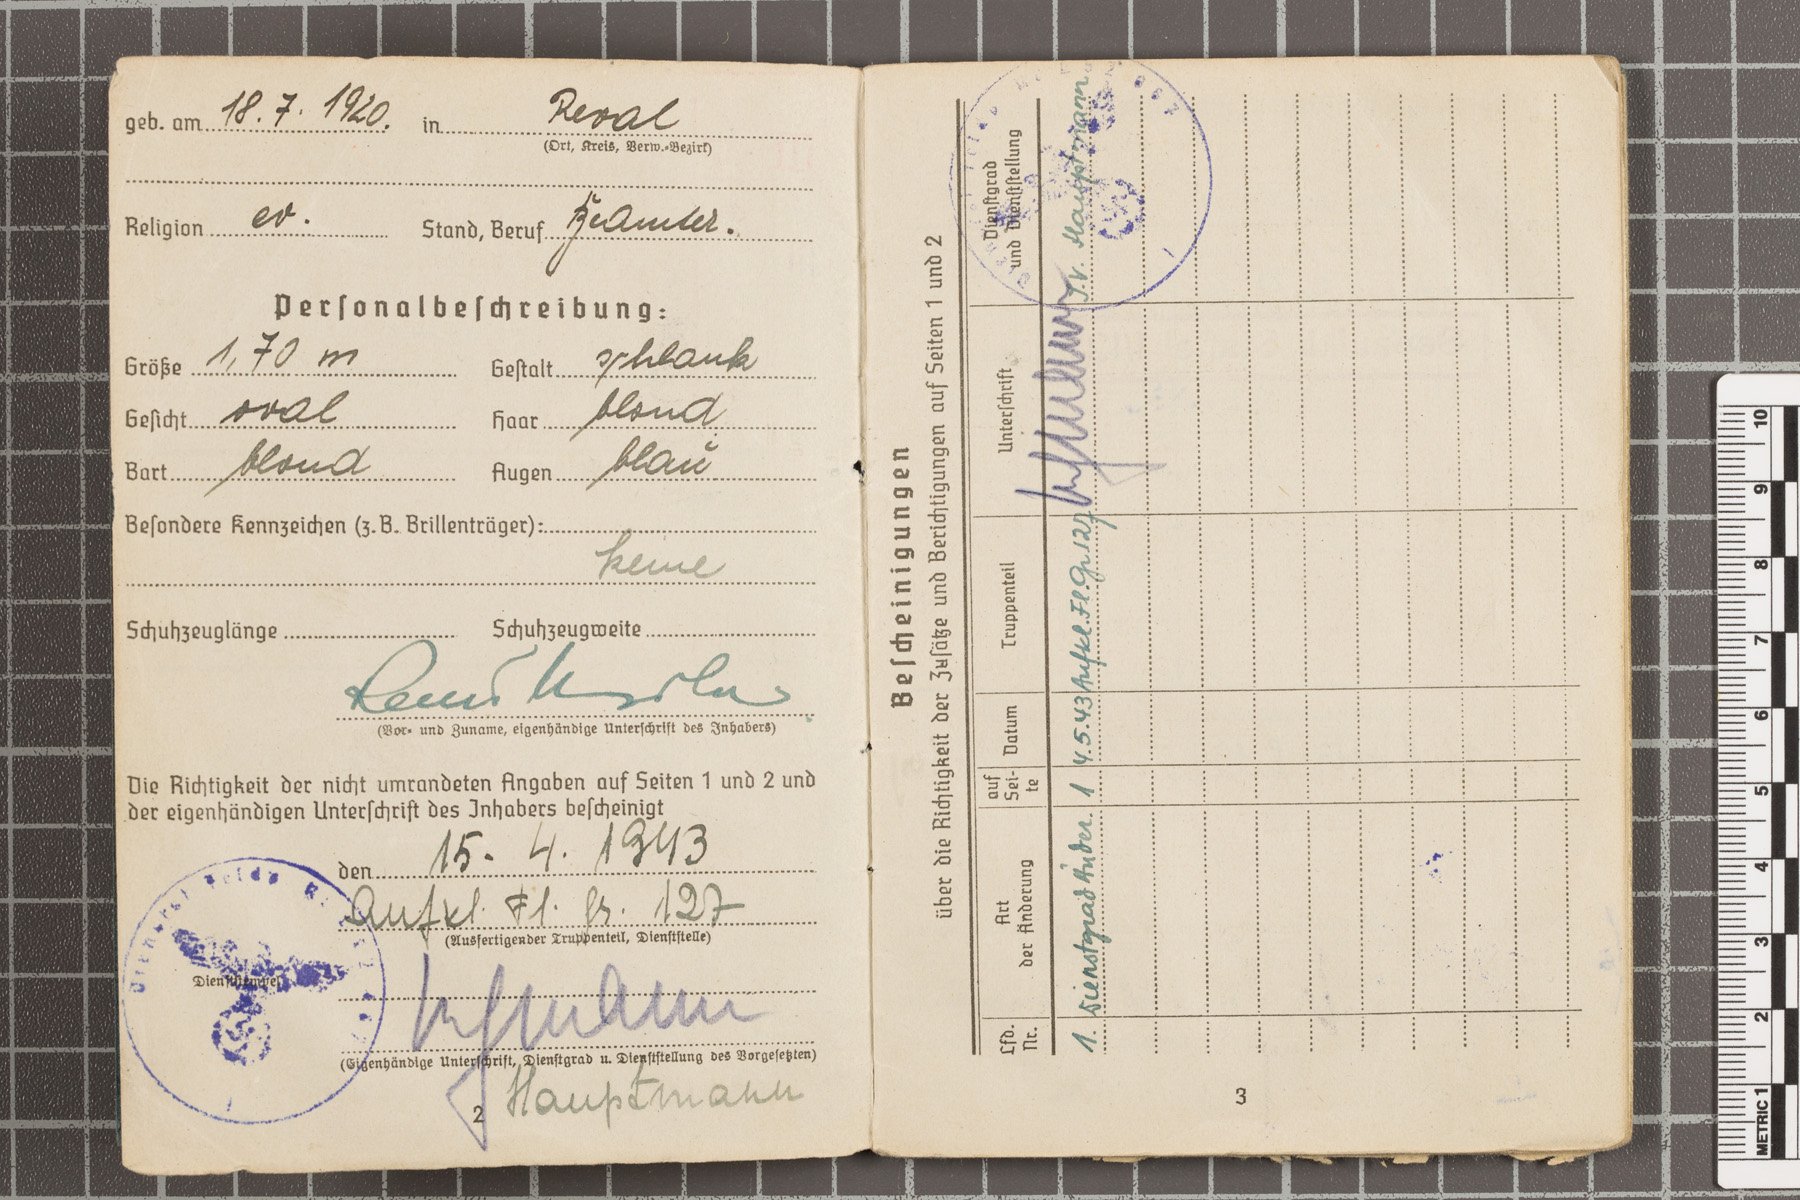 geb. am 18.7.1920. in Reval
(Ort, Kreis, Verw.-Bezirk)
Religion ev. Stand, Beruf Beamter.
Personalbeschreibung:
Größe 1,70 m Gestalt schlank
Gesicht oval Haar blond
Bart blond Augen blau
Besondere Kennzeichen (z. B. Brillenträger):
keine
Schuhzeuglänge Schuhzeugweite
(Vor- und Zuname, eigenhändige Unterschrift des Inhabers)
Die Richtigkeit der nicht umrandeten Angaben auf Seiten 1 und 2 und
der eigenhändigen Unterschrift des Inhabers bescheinigt
den 15. 4. 1943
Aufkl. Fl. Gr. 127
(Ausfertigender Truppenteil, Dienststelle)
Dienststempel
(Eigenhändige Unterschrift, Dienstgrad u. Dienststellung des Vorgesetzten)
Hauptmann
2
Bescheinigungen
über die Richtigkeit der Zusätze und Berichtigungen auf Seiten 1 und 2
Lfd. Nr.
Art der Änderung
auf Sei-te
Datum
Truppenteil
Unterschrift
Dienstgrad und Dienststellung
1. Dienstgrad Änder. 1 4.5.43 Aufkl.Fl.Gr.127 Hauptmann
3
METRIC 1 2 3 4 5 6 7 8 9 10